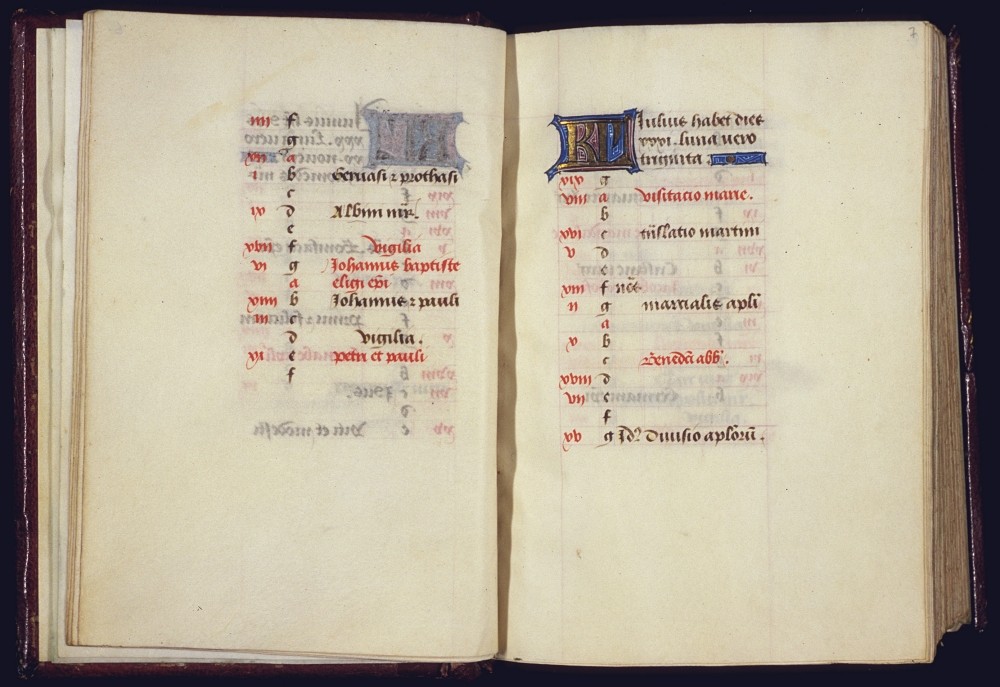 iiii f
g
xii a
i b Gervasi ⁊ prothasi
c
ix d Albini mr̃.
e
xvii f vigilia
vi g Johannis baptiste
a eligi epi
xiiii b Johannis ⁊ pauli
iii c
d vigilia.
xi e petri et pauli
f
7
KL Iulius habet dies
xxxi. luna vero
triginta
xix g
viii a visitacio marie.
b
xvi c trãslatio martini
v d
e
xiii f nõs
ii g marcialis apli
a
x b
c Benedcĩ abb̃.
xviii d
vii e
f
xv g Jdꝰ Divisio aplorũ.